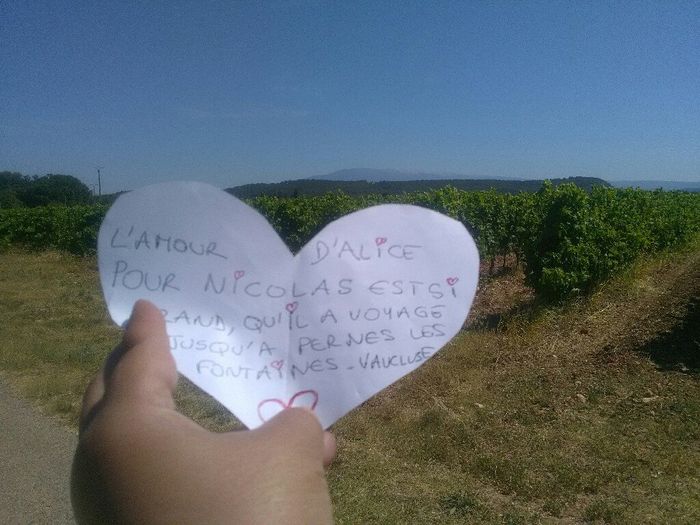 L'AMOUR D'ALiCE
POUR NiCOLAS EST Si
RAND, QU'iL A VOYAGÉ
JUSQU'A PERNES LES
FONTAiNES - VAUCLUSE